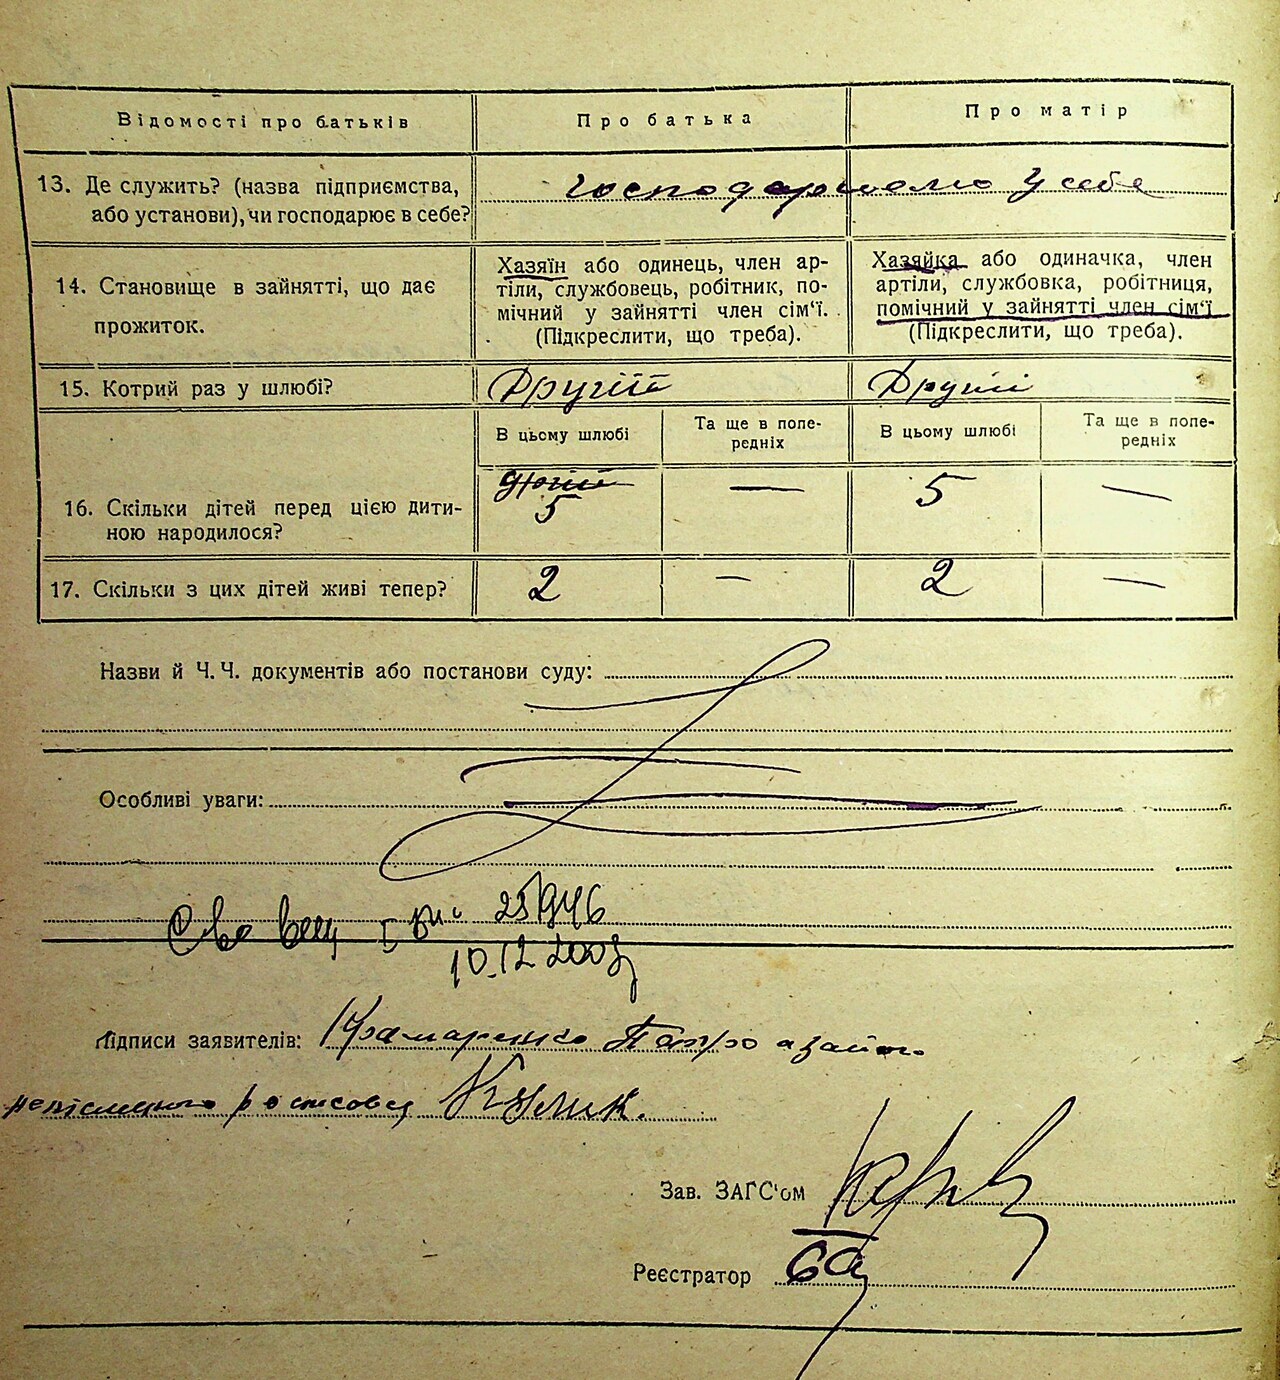 Відомості про батьків
Про батька
Про матір
13. Де служить? (назва підприємства, або установи), чи господарює в себе?
у себе
14. Становище в зайнятті, що дає прожиток.
Хазяїн або одинець, член ар-
тіли, службовець, робітник, по-
мічний у зайнятті член сім'ї.
(Підкреслити, що треба).
Хазяйка або одиначка, член
артіли, службовка, робітниця,
помічний у зайнятті член сім'ї
(Підкреслити, що треба).
15. Котрий раз у шлюбі?
Другий
Другий
В цьому шлюбі
Та ще в попе-
редніх
В цьому шлюбі
Та ще в попе-
редніх
16. Скільки дітей перед цією дити-
ною народилося?
5
—
5
—
17. Скільки з цих дітей живі тепер?
2
—
2
—
Назви й Ч. Ч. документів або постанови суду:
Особливі уваги:
10.12.2003
Підписи заявителів: Крамаренко Петро
Кулик.
Зав. ЗАГС'ом
Реєстратор